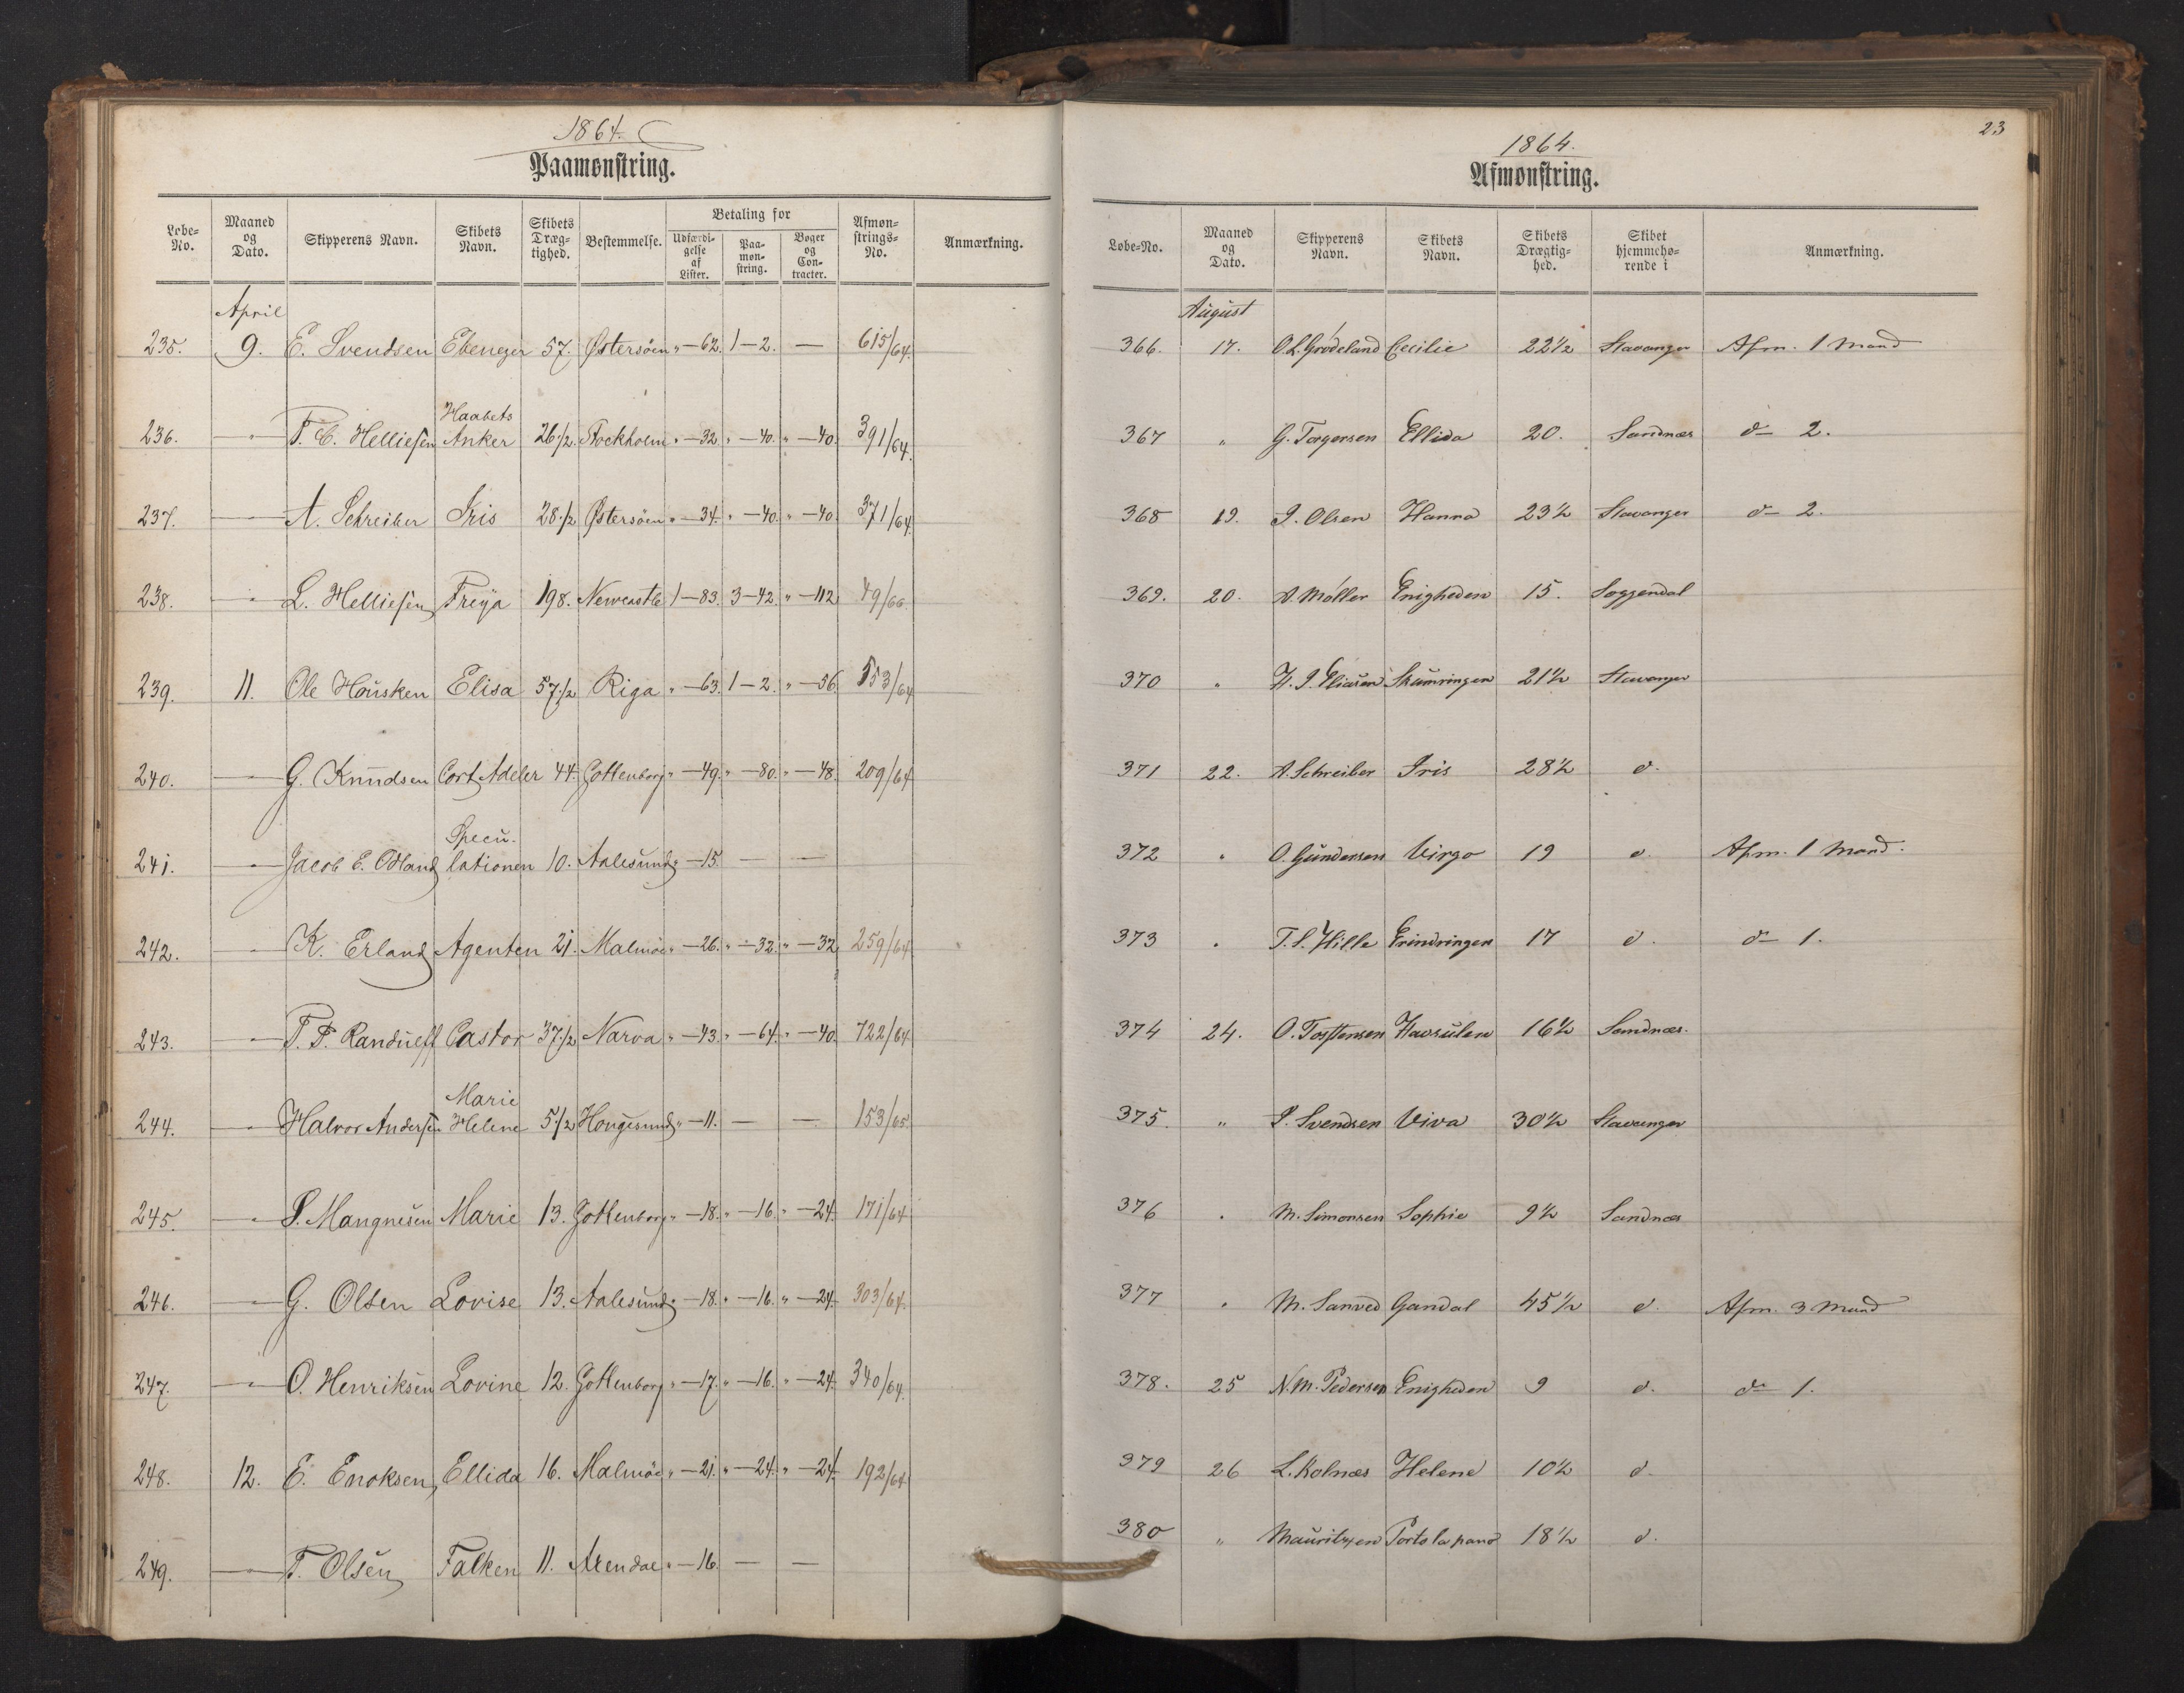 1864.
Paamønstring.
Løbe-No. | Maaned og Dato. | Skipperens Navn. | Skibets Navn. | Skibets Dræg-tighed. | Bestemmelse. | Betaling for | Udfærdi-gelse af Lister. | Paa-møn-string. | Bøger og Con-tracter. | Afmøn-strings-No. | Anmærkning.
April
235. 9. E. Svendsen Ebenezer 57. Østersöen " — 62. 1 — 2. — 615/64.
Haabets
236. — " — T. C. Helliesen Anker 26 1/2. Stockholm " — 32. " — 40. " — 40. 391/64.
237. — " — A. Schreiber Iris 28 1/2 Østersöen " — 34. " — 40. " — 40. 371/64.
238. — " — L. Helliesen Freya 198. Newcastle 1 — 83. 3 — 42. " — 112. 49/66.
239. 11. Ole Housken Elisa 57 1/2 Riga " — 63. 1 — 2. " — 56. 553/64
240. — " — G. Knudsen Cort Adeler 44. Gottenborg " — 49. " — 80. " — 48. 209/64
Specu-
241. — " — Jacob E. Odland lationen 10. Aalesund " — 15. — —
242. — " — K. Erland Agenten 21. Malmöe " — 26. " — 32. " — 32. 259/64
243. — " — T. T. Randueff Castor 37 1/2 Narva " — 43. " — 64. " — 40. 722/64.
Marie
244. — " — Halvor Andersen Helene 5 1/2 Hougesund " — 11. — — 153/65.
245. — " — S. Mangnesen Marie 13. Gottenborg " — 18. " — 16. " — 24. 171/64
246. — " — G. Olsen Lovise 13. Aalesund " — 18. " — 16. " — 24. 303/64.
247. — " — O. Henriksen Lovine 12. Gottenborg " — 17. " — 16. " — 24. 340/64.
248. 12. E. Enoksen Ellida 16. Malmöe " — 21. " — 24. " — 24. 192/64.
249. — " — T. Olsen Falken 11. Arendal " — 16. — —
23
1864.
Afmønstring.
Løbe-No. | Maaned og Dato. | Skipperens Navn. | Skibets Navn. | Skibets Drægtig-hed. | Skibet hjemmehø-rende i | Anmærkning.
August
366. 17. O. L. Grødeland Cecilie 22 1/2 Stavanger Afm. 1 Mand
367 " G. Torgersen Ellida 20. Sandnæs do 2.
368 19. I. Olsen Hanna 23 1/2 Stavanger do 2.
369. 20. A. Møller Enigheden 15. Soggendal
370 " H. I. Eliasen Skumringen 21 1/2 Stavanger
371 22. A. Schreiber Iris 28 1/2 d.
372 " O. Gundersen Virgo 19 d. Afm. 1 Mand.
373 " T. S. Hille Erindringen 17 d. do 1.
374 24. O. Torstensen Havsulen 16 1/2 Sandnæs.
375. " P. Svendsen Viva 30 1/2 Stavanger
376 " M. Simonsen Sophie 9 1/2 Sandnæs
377 " M. Sanved Gandal 45 1/2 d. Afm. 3 Mand
378. 25 N. M. Pedersen Enigheden 9 d. do 1.
379 26 L. Kolnæs Helene 10 1/2 d.
380 " Mauritzen Porto la pand 18 1/2 d.